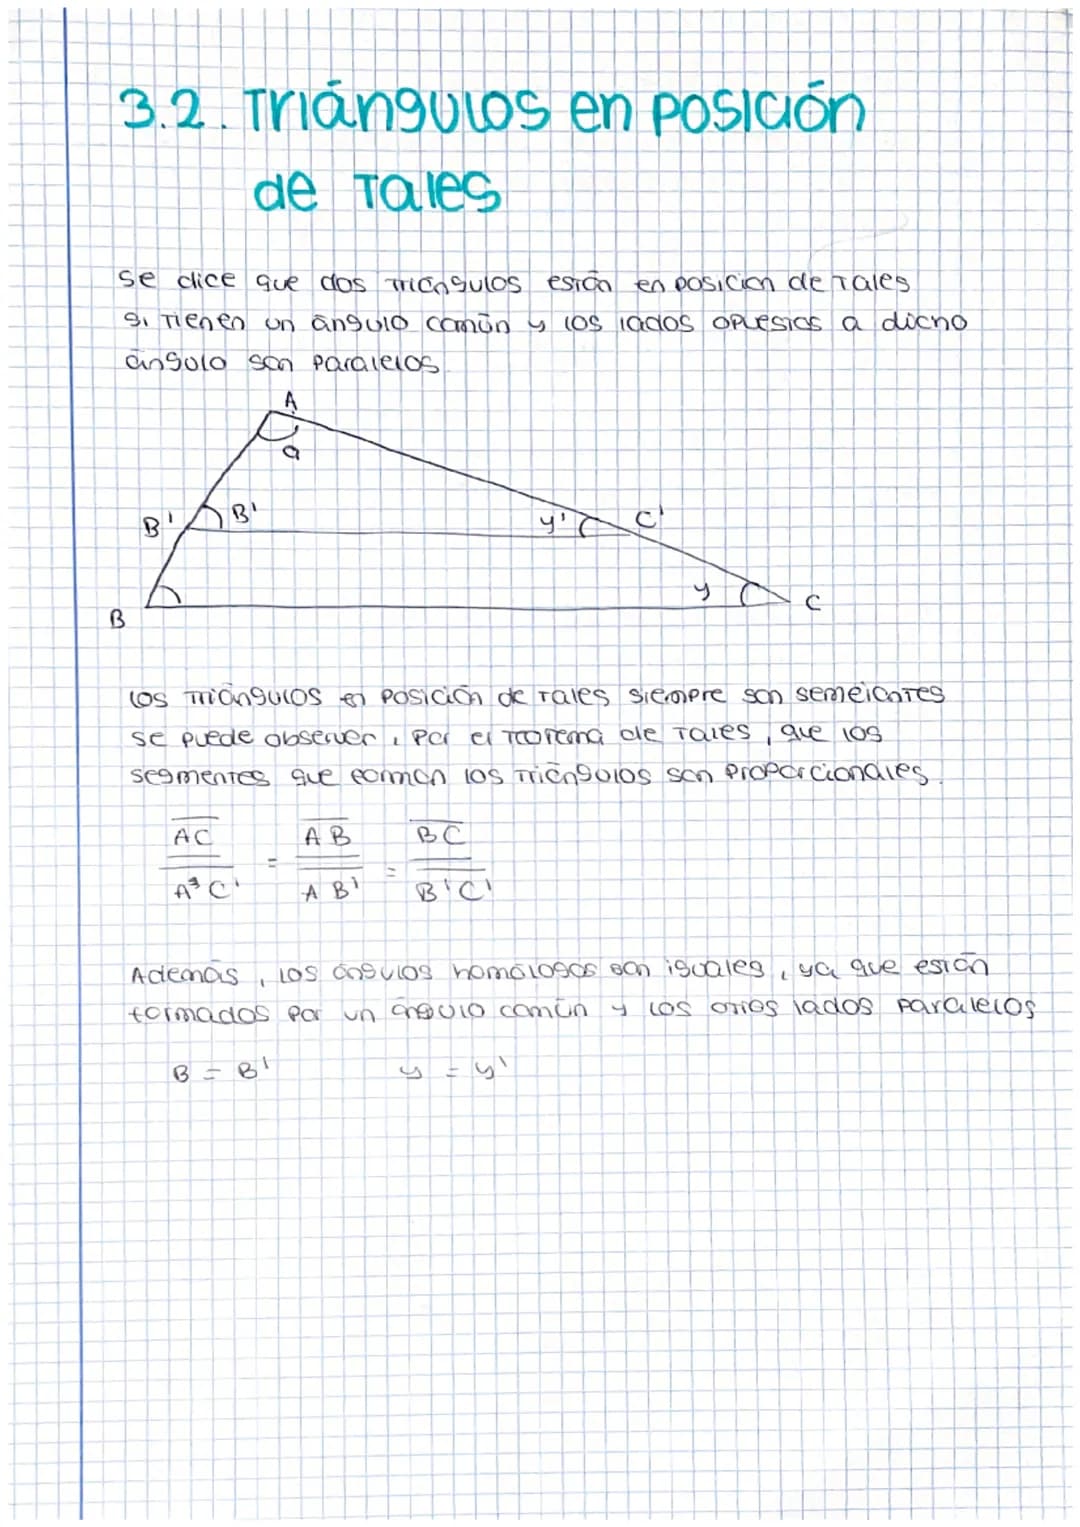 3.2. Triángulos en posición
de Tales
se dice que dos triángulos están en posición de Tales
si tienen un ángulo común y los lados opuestos a dicho
ángulo son paralelos.
A
a
B' B' y' C'
y
B C
los triángulos en posición de Tales siempre son semejantes
se puede observar, por el teorema de Tales, que los
segmentos que forman los triángulos son proporcionales.
AC AB BC
= =
A'C' AB' B'C'
Además, los ángulos homólogos son iguales, ya que están
formados por un ángulo común y los otros lados paralelos
B = B' y = y'